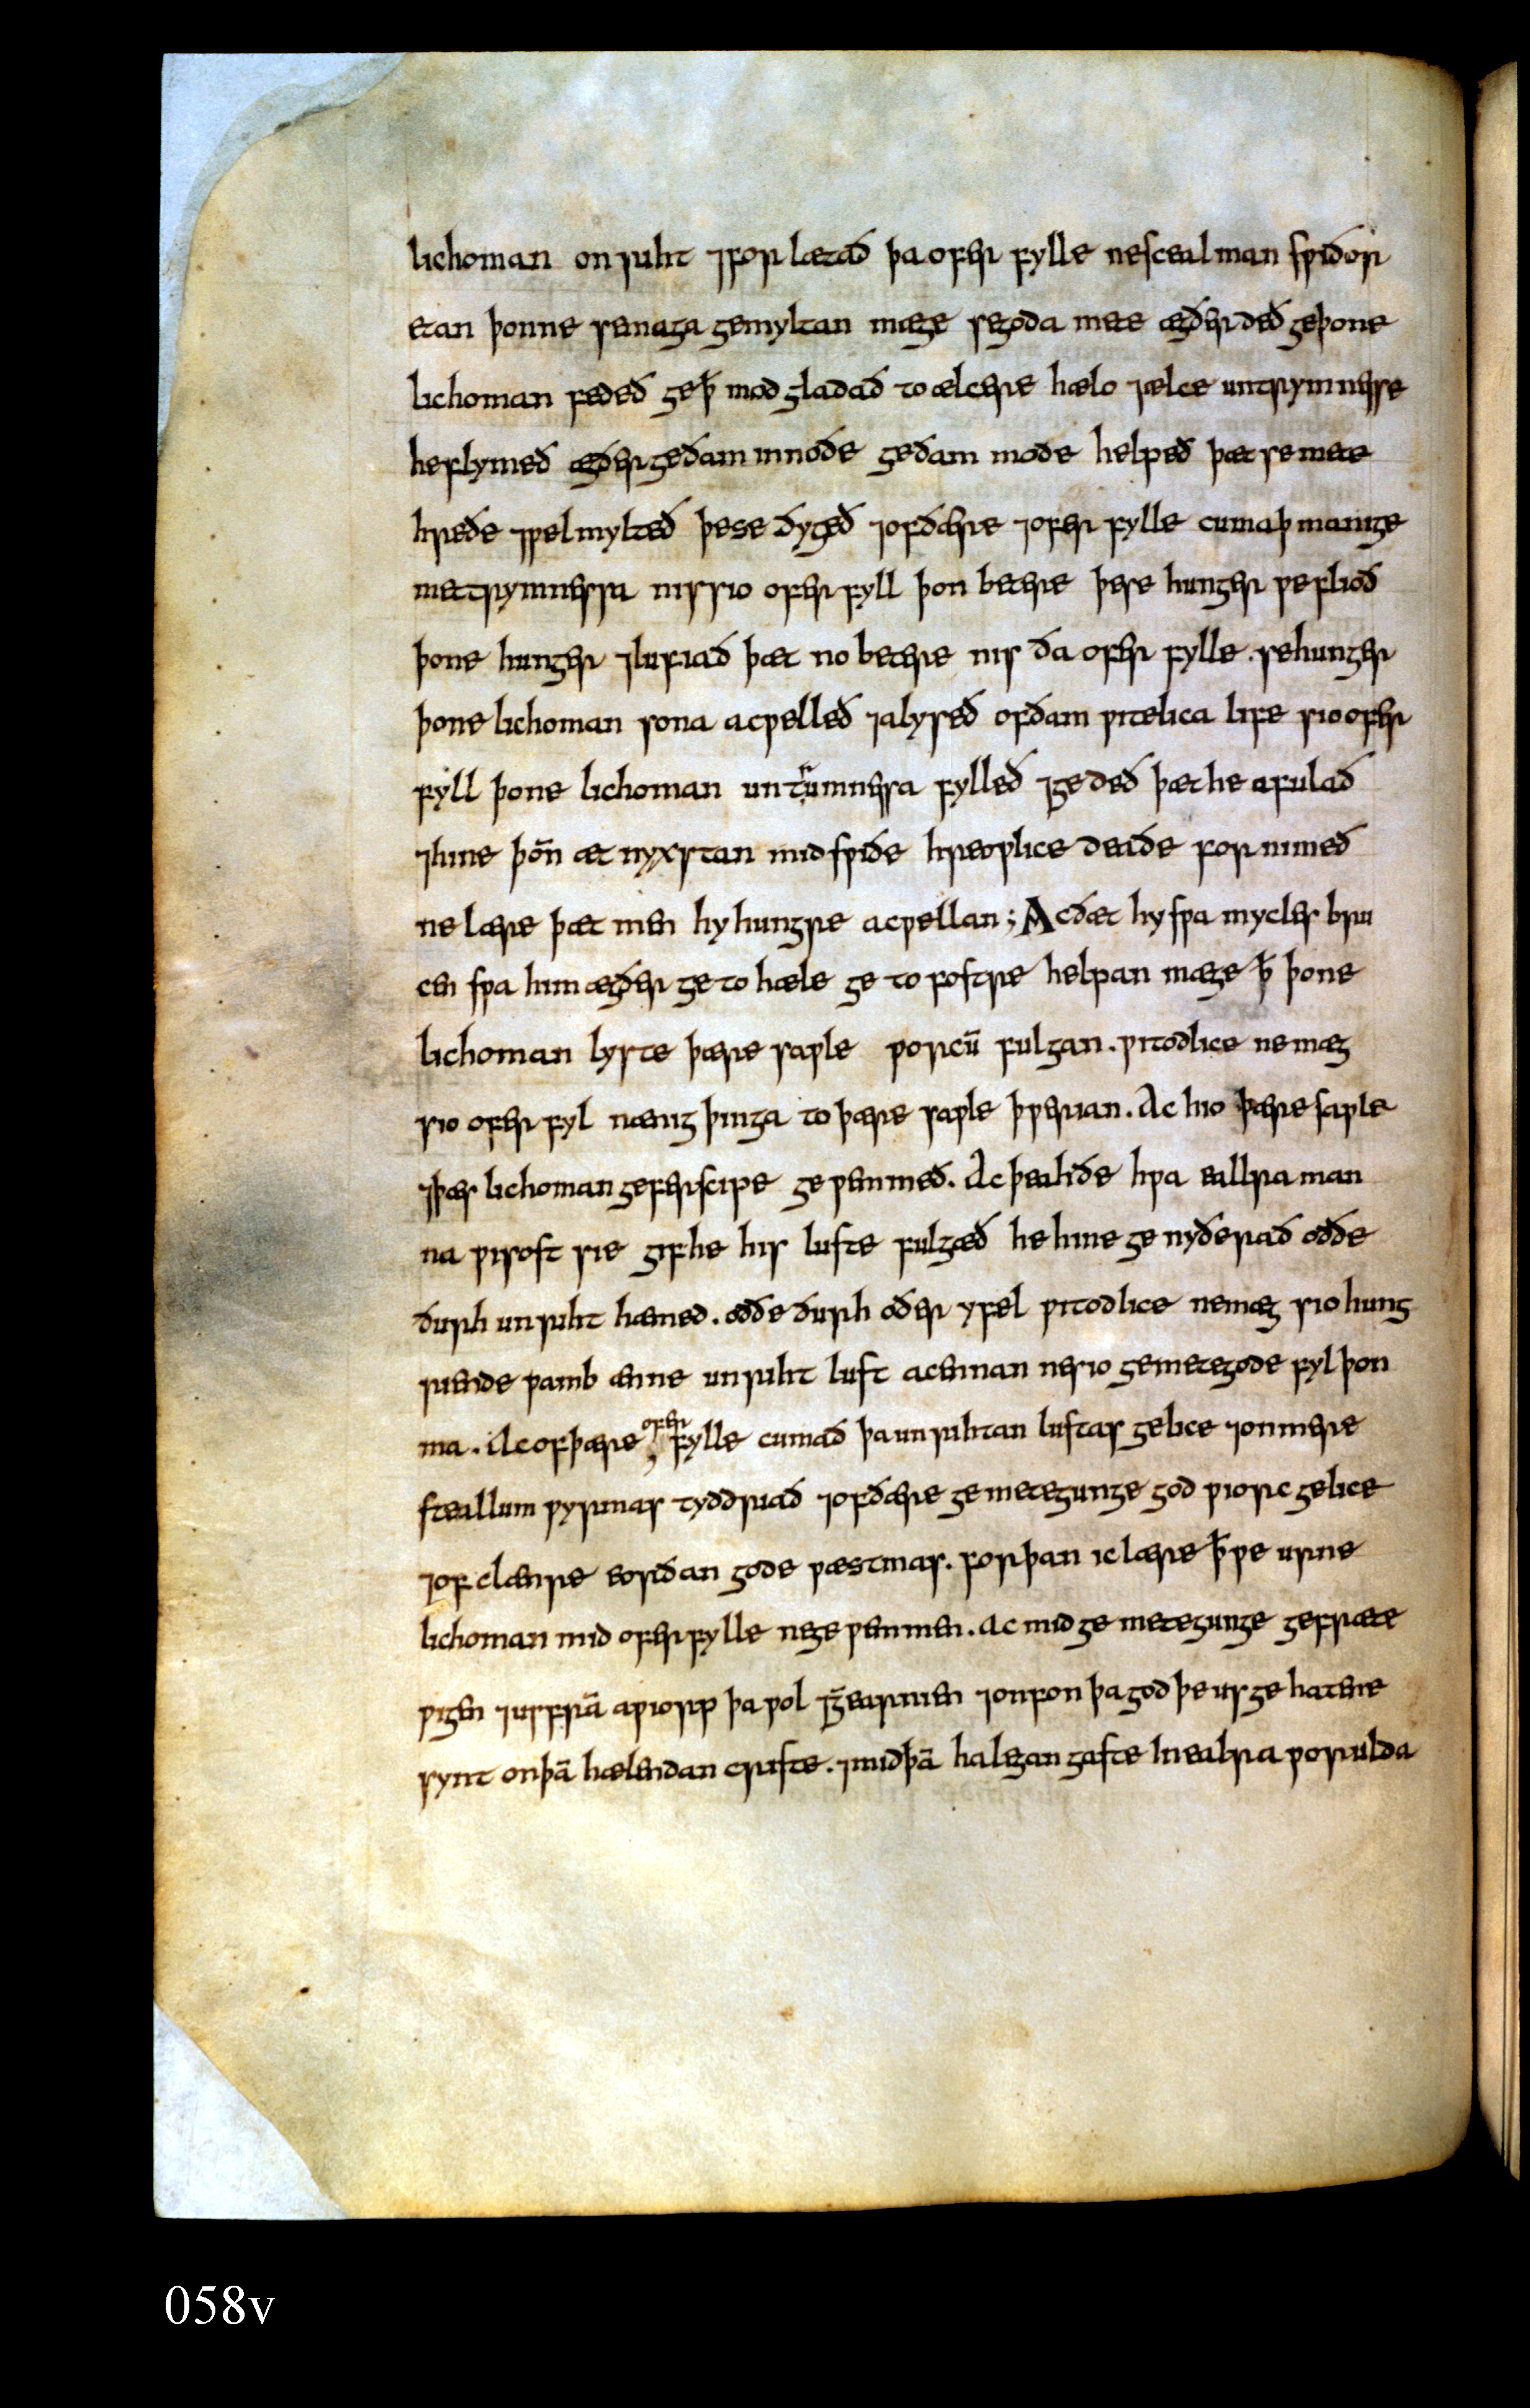 lichoman onriht ⁊forlætað þa ofer fylle nesceal man swiðor
etan þonne semaga gemyltan mæge segoda mete ægðer deð geþone
lichoman fedeð geꝥ mod gladað to ælcere hælo ⁊ælce untrymnesse
heflymeð ægðer geðam innoðe geðam mode helpeð þæt semete
hreðe ⁊wel mylteð þese ðygeð ⁊ofðære ⁊ofer fylle cumaþ manige
mettrymnessa nis sio ofer fyll þon betere þese hunger weflioð
þone hunger ⁊lufiað þæt no betere nis ða ofer fylle. sehunger
þone lichoman sona acwelleð ⁊alyseð ofðam witelica life sio ofer
fyll þone lichoman untrumnessa fylleð ⁊gedeð þæt he afulað
⁊hine þon̄ æt nyxstan mid swiðe hreowlice deaðe fornimeð
ne lære þæt men hy hungre acwellan; Ac ðæt hy swa mycles bru
cen swa him ægðer ge to hæle ge to fostre helpan mæge ꝥ þone
lichoman lyste þære sawle worcū fulgan. witodlice ne mæg
sio ofer fyl nænig þinga to þære sawle þwerian. Ac hio þære sawle
⁊þæs lichoman geferscipe gewemmeð. Ac þeahðe hwa ealra man
na wisost sie gif he his luste fulgæð he hine genyðerað oððe
ðurh unriht hæmed. oððe ðurh oðer yfel witodlice nemæg sio hung
riende wamb ænne unriht lust acennan ne sio gemetegode fyl þon
ma. Ac of þære ofer fylle cumað þa unrihtan lustas gelice ⁊on mere
steallum wyrmas tyddriað ⁊ofðære gemetegunge god weorc gelice
⁊of clænre eorðan gode wæstmas. forþan ic lære ꝥ we urne
lichoman mid ofer fylle ne gewemmen. Ac mid gemetegunge gefræte
wigen ⁊us frā aweorp þa wol ⁊ḡearnien ⁊onfon þa god þe us gehatene
synt on þā hælendan criste. ⁊mid þā halegan gaste in ealra worulda